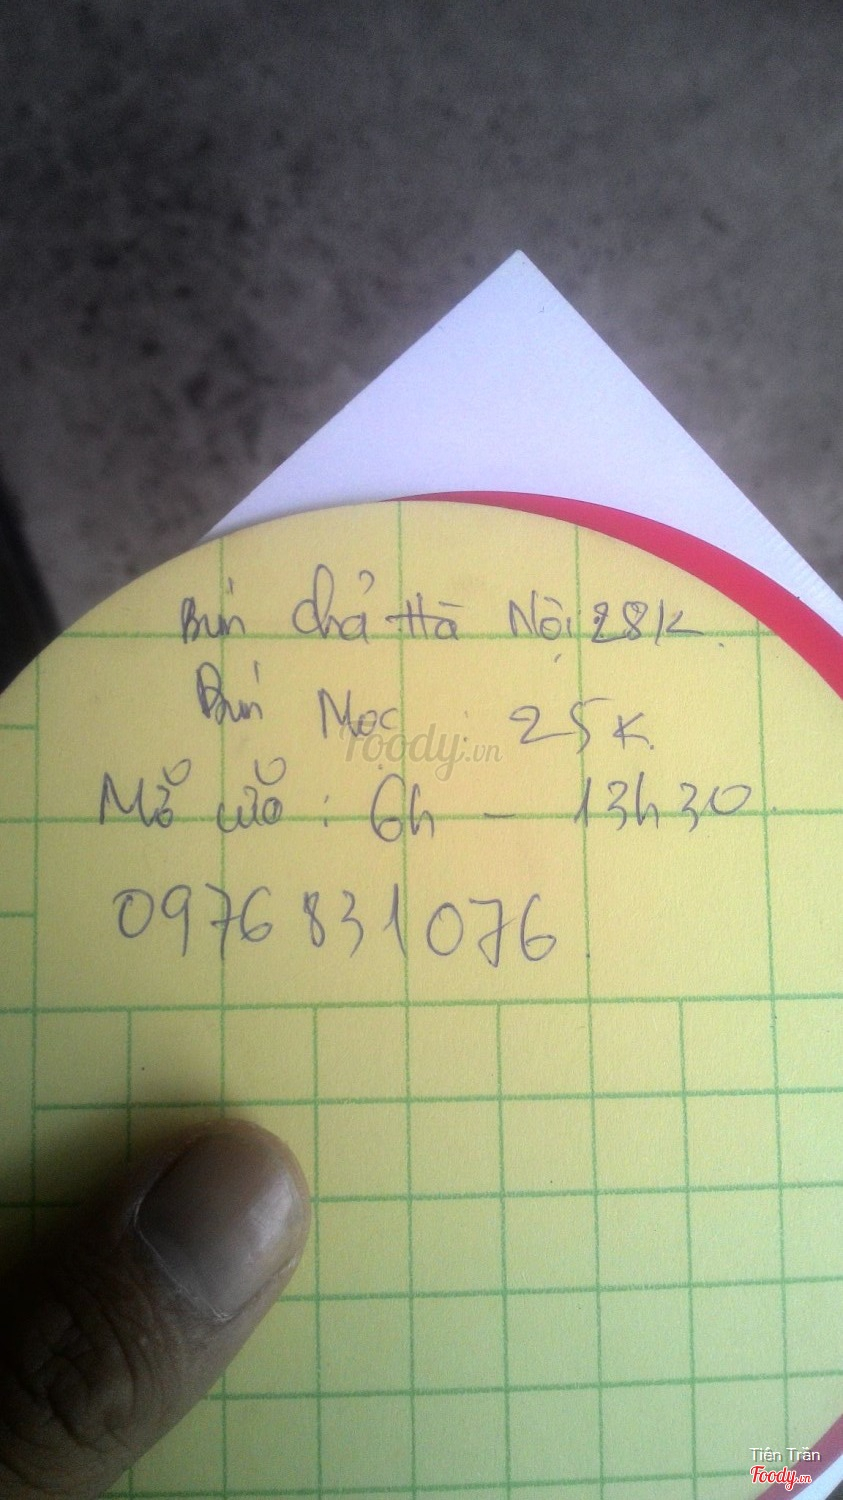 Bún chả Hà Nội 28K.
Bún Mọc : 25K.
foody.vn
Mở cửa : 6h - 13h30.
0976 831 076.
Tiên Trần
Foody.vn